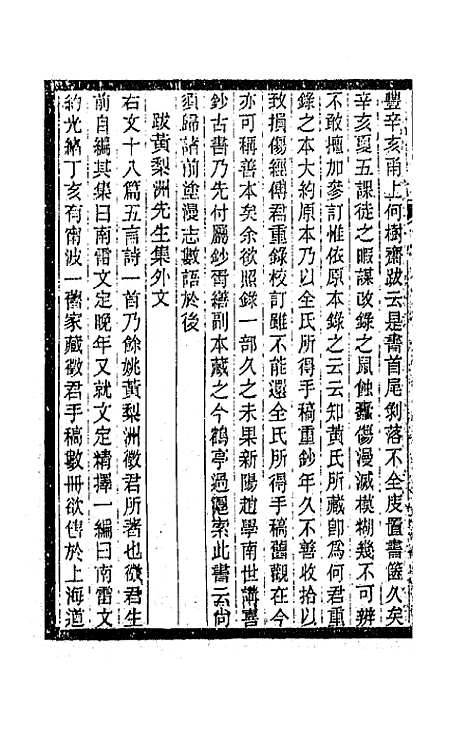 豐辛亥甬上何樹齋跋云是書首尾剝落不全庋置書篋久矣
辛亥夏五課徒之暇謀改錄之鼠蝕蠹傷漫滅模糊幾不可辨
不敢擅加參訂惟依原本錄之云云知黃氏所藏卽爲何君重
錄之本大約原本乃以全氏所得手稿重鈔年久不善收拾以
致損傷經傅君重錄校訂雖不能還全氏所得手稿舊觀在今
亦可稱善本矣余欲照錄一部久之未果新陽趙學南世講喜
鈔古書乃先付屬鈔胥繕副本藏之今鶴亭過滬索此書云尚
須歸諸前塗漫志數語於後
跋黃梨洲先生集外文
右文十八篇五言詩一首乃餘姚黃梨洲徵君所著也徵君生
前自編其集曰南雷文定晚年又就文定精擇一編曰南雷文
約光緒丁亥有甯波一舊家藏徵君手稿數冊欲售於上海道